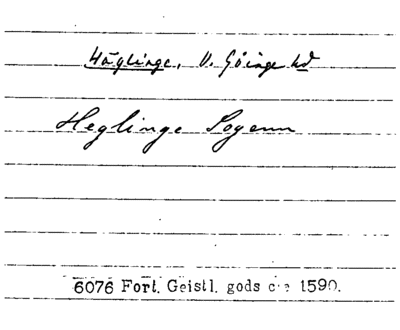 Häglinge, V. Göinge hd
Heglinge Sogenn
6076 Fort. Geistl. gods c:a 1590.